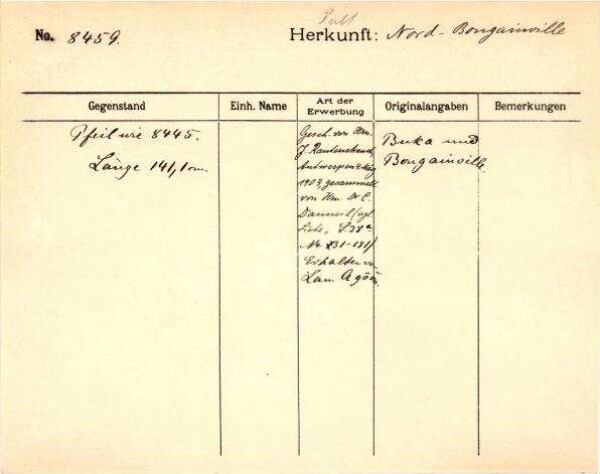 Pult
No. 8459. Herkunft: Nord-Bougainville
Gegenstand Einh. Name Art der Erwerbung Originalangaben Bemerkungen
Pfeil wie 8445.
Länge 141,1 cm.
Gesch. von Hrn.
J. Rautenstrauch,
Antwerpen
1903, gesammelt
von Hrn. Dr. E.
Danneil
No. 131-181/
Erhalten
Buka und
Bougainville.